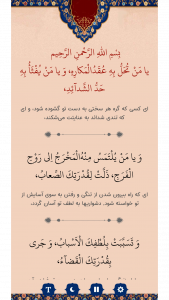 بِسْمِ اللَّهِ الرَّحْمنِ الرَّحِيمِ
يا مَنْ تُحَلُّ بِهِ عُقَدُ الْمَكارِهِ، وَ يا مَنْ يُفْثَأُ بِهِ
حَدُّ الشَّدآئِدِ،
ای کسی که گره هر سختی به دست تو گشوده شود، و ای
که تندی شدائد به عنایتت می‌شکند،
وَ يا مَنْ يُلْتَمَسُ مِنْهُ الْمَخْرَجُ اِلى رَوْحِ
الْفَرَجِ، ذَلَّتْ لِقُدْرَتِكَ الصِّعابُ،
و ای که راه بیرون شدن از تنگی و رفتن به سوی آسایش از
تو خواسته شود. دشواریها به لطف تو آسان گردد،
وَ تَسَبَّبَتْ بِلُطْفِكَ الْاَسْبابُ، وَ جَرى
بِقُدْرَتِكَ الْقَضآءُ،